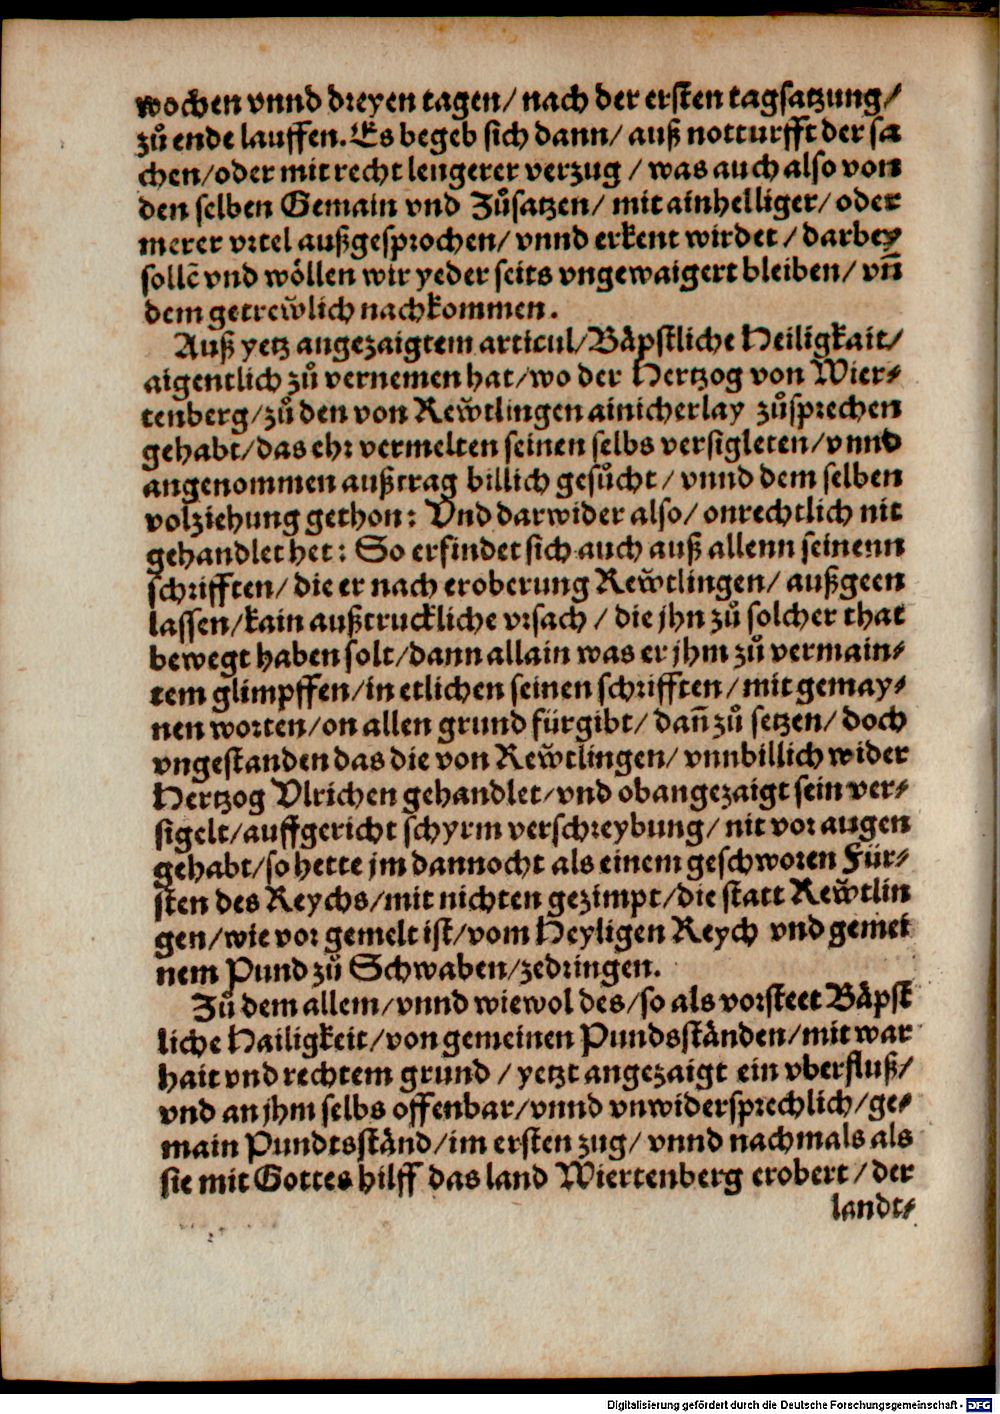 wochen vnnd dreyen tagen/ nach der ersten tagsatzung/
zů ende lauffen. Es begeb sich dann/ auß notturfft der sa
chen/ oder mit recht lengerer verzug / was auch also von
den selben Gemain vnd Zůsatzen/ mit ainhelliger/ oder
merer vrtel außgesprochen/ vnnd erkent wirdet / darbey
sollē vnd wöllen wir yeder seits vngewaigert bleiben/ vñ
dem getrewlich nachkommen.
Auß yetz angezaigtem articul/ Bäpstliche Heiligkait/
aigentlich zů vernemen hat/ wo der Hertzog von Wier⸗
tenberg/ zů den von Rewtlingen ainicherlay zůsprechen
gehabt/ das ehr vermelten seinen selbs versigleten/ vnnd
angenommen außtrag billich gesůcht / vnnd dem selben
volziehung gethon: Vnd darwider also/ onrechtlich nit
gehandlet het: So erfindet sich auch auß allenn seinenn
schrifften/ die er nach eroberung Rewtlingen/ außgeen
lassen/ kain außtruckliche vrsach / die jhn zů solcher that
bewegt haben solt/ dann allain was er jhm zů vermain⸗
tem glimpffen/ in etlichen seinen schrifften/ mit gemay⸗
nen worten/ on allen grund fürgibt/ dañ zů setzen/ doch
vngestanden das die von Rewtlingen/ vnnbillich wider
Hertzog Vlrichen gehandlet/ vnd obangezaigt sein ver⸗
sigelt/ auffgericht schyrm verschreybung/ nit vor augen
gehabt/ so hette jm dannocht als einem geschworen Für⸗
sten des Reychs/ mit nichten gezimpt/ die statt Rewtlin
gen/ wie vor gemelt ist/ vom Heyligen Reych vnd gemei
nem Pund zů Schwaben/ zedringen.
Zů dem allem/ vnnd wiewol des/ so als vorsteet Bäpst
liche Hailigkeit/ von gemeinen Pundsständen/ mit war
hait vnd rechtem grund / yetzt angezaigt ein vberfluß/
vnd an jhm selbs offenbar/ vnnd vnwidersprechlich/ ge⸗
main Pundtsständ/ im ersten zug/ vnnd nachmals als
sie mit Gottes hilff das land Wiertenberg erobert / der
landt⸗
Digitalisierung gefördert durch die Deutsche Forschungsgemeinschaft - DFG